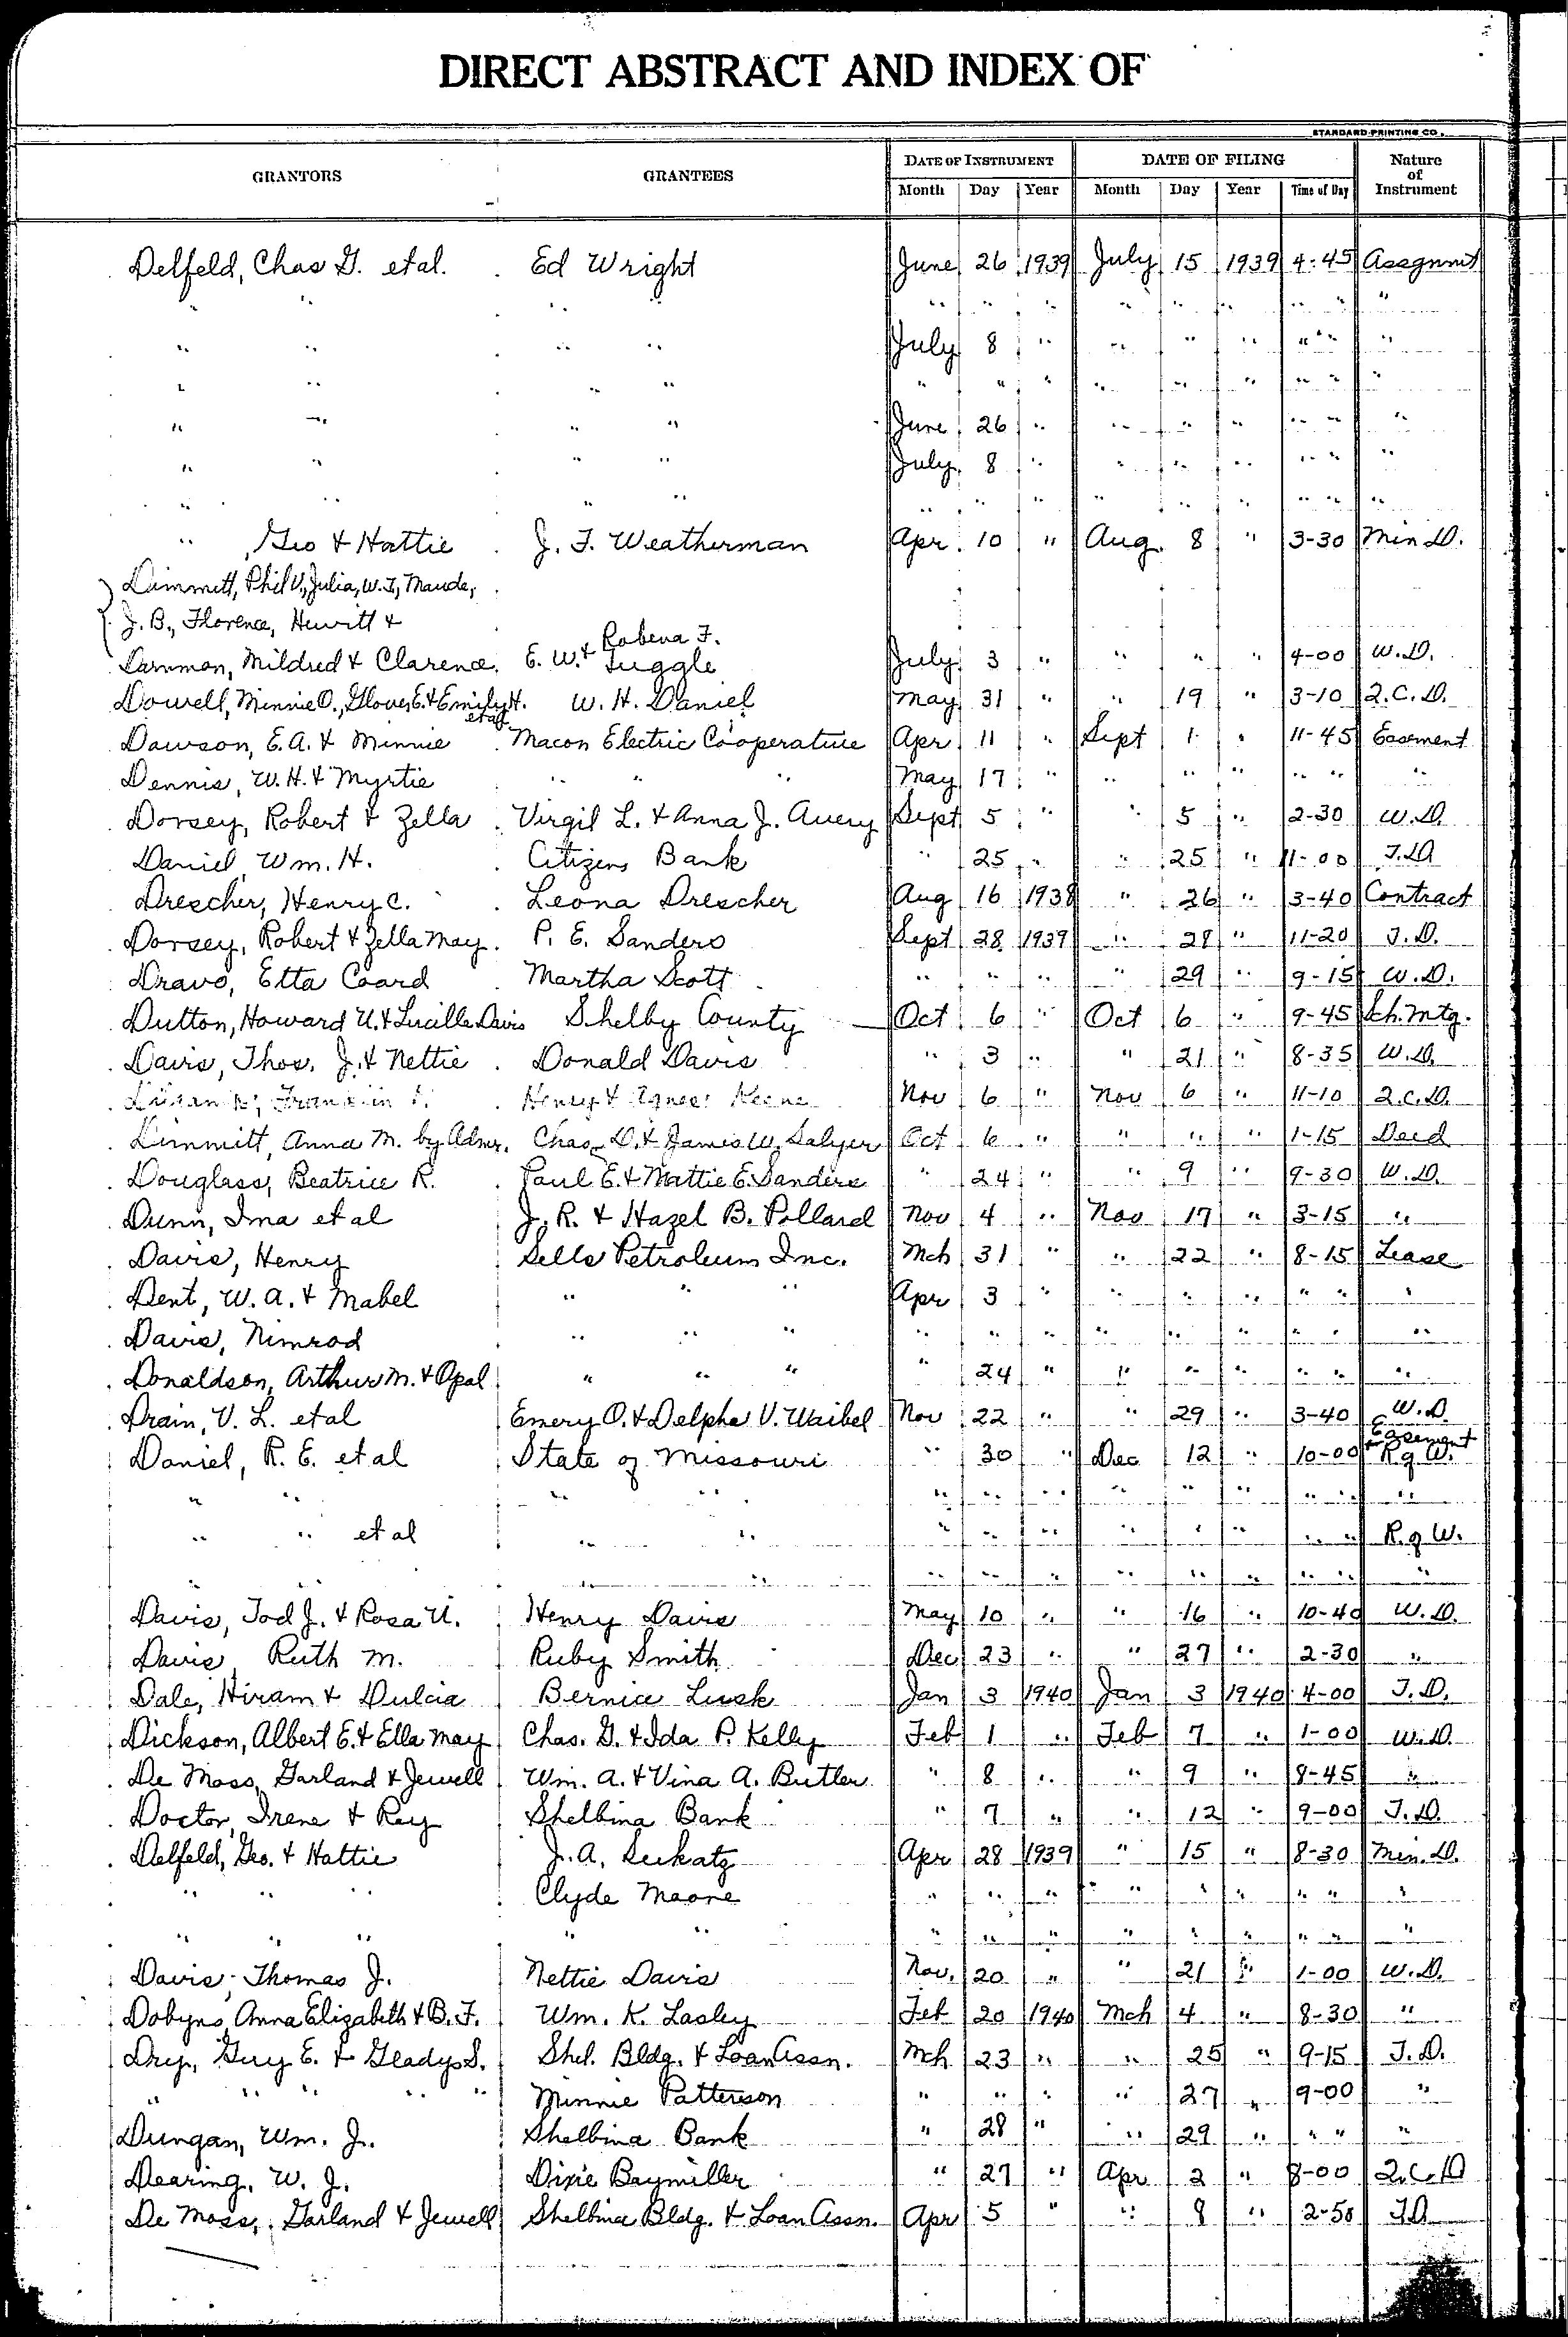 DIRECT ABSTRACT AND INDEX OF
STANDARD PRINTING CO.
GRANTORS GRANTEES DATE OF INSTRUMENT DATE OF FILING Nature of Instrument
Month Day Year Month Day Year Time of Day
Delfeld, Chas G. et al. Ed Wright June 26 1939 July 15 1939 4:45 Assgnmt
" " " " " " " " " " "
" " " " July 8 " " " " " " "
" " " " " " " " " " " " "
" " " " June 26 " " " " " " "
" " " " July 8 " " " " " " "
" " " " " " " " " " " " "
" , Geo & Hattie J. F. Weatherman Apr 10 " Aug. 8 " 3-30 Min D.
Dimmitt, Phil V., Julia, W.T., Maude,
J. B., Florence, Hewitt &
Damman, Mildred & Clarence. E. W. & Robena F. Tuggle July 3 " " " " 4-00 W.D.
Dowell, Minnie O., Glover E. & Emily H. et al W. H. Daniel May 31 " " 19 " 3-10 Q.C.D.
Dawson, E. A. & Minnie Macon Electric Cooperative Apr 11 " Sept 1 " 11-45 Easement
Dennis, W. H. & Myrtie " " " May 17 " " " " " " "
Dorsey, Robert & Zella Virgil L. & Anna J. Avery Sept 5 " " 5 " 2-30 W.D.
Daniel, Wm. H. Citizens Bank " 25 " " 25 " 11-00 T.D.
Drescher, Henry C. Leona Drescher Aug 16 1938 " 26 " 3-40 Contract
Dorsey, Robert & Zella May. P. E. Sanders Sept 28 1939 " 28 " 11-20 T.D.
Dravo, Etta Coard Martha Scott " " " " 29 " 9-15 W.D.
Dutton, Howard U. & Lucille Davis Shelby County Oct 6 " Oct 6 " 9-45 Sch. Mtg.
Davis, Thos. J. & Nettie Donald Davis " 3 " " 21 " 8-35 W.D.
Franklin Henry & Agnes Keene Nov 6 " Nov 6 " 11-10 Q.C.D.
Dimmitt, Anna M. by Admr. Chas D. & James W. Salyer Oct 6 " " " " 1-15 Deed
Douglass, Beatrice R. Paul E. & Mattie E. Sanders " 24 " " 9 " 9-30 W.D.
Dunn, Ima et al J. R. & Hazel B. Pollard Nov 4 " Nov 17 " 3-15 "
Davis, Henry Sells Petroleum Inc. Mch 31 " " 22 " 8-15 Lease
Dent, W. A. & Mabel " " " Apr 3 " " " " " " "
Davis, Nimrod " " " " " " " " " " " "
Donaldson, Arthur M. & Opal " " " " 24 " " " " " " "
Drain, V. L. et al Emery O. & Delpha V. Waibel Nov 22 " " 29 " 3-40 W.D.
Daniel, R. E. et al State of Missouri " 30 " Dec 12 " 10-00 Easement & R of W.
" " " " " " " " " " " " "
" " et al " " " " " " " " " " R. of W.
" " " " " " " " " " " "
Davis, Tod J. & Rosa U. Henry Davis May 10 " " 16 " 10-40 W.D.
Davis, Ruth M. Ruby Smith Dec 23 " " 27 " 2-30 "
Dale, Hiram & Dulcia Bernice Lusk Jan 3 1940 Jan 3 1940 4-00 T.D.
Dickson, Albert E. & Ella May Chas. G. & Ida P. Kelly Feb 1 " Feb 7 " 1-00 W.D.
De Moss, Garland & Jewell Wm. A. & Vina A. Butler " 8 " " 9 " 8-45 "
Doctor, Irene & Ray Shelbina Bank " 7 " " 12 " 9-00 T.D.
Delfeld, Geo. & Hattie J. A. Leekatz Apr 28 1939 " 15 " 8-30 Min. D.
" " " Clyde Moore " " " " " " " " "
" " " " " " " " " " " " " "
Davis, Thomas J. Nettie Davis Nov. 20 " " 21 " 1-00 W.D.
Dobyns, Anna Elizabeth & B. F. Wm. K. Lasley Feb 20 1940 Mch 4 " 8-30 "
Dry, Guy E. & Gladys S. Shel. Bldg. & Loan Assn. Mch 23 " " 25 " 9-15 T.D.
" " " " " Minnie Patterson " " " " 27 " 9-00 "
Dungan, Wm. J. Shelbina Bank " 28 " " 29 " " " "
Dearing, W. J. Dixie Baymiller " 27 " Apr 2 " 8-00 Q.C.D
De Moss, Garland & Jewell Shelbina Bldg. & Loan Assn. Apr 5 " " 8 " 2-50 T.D